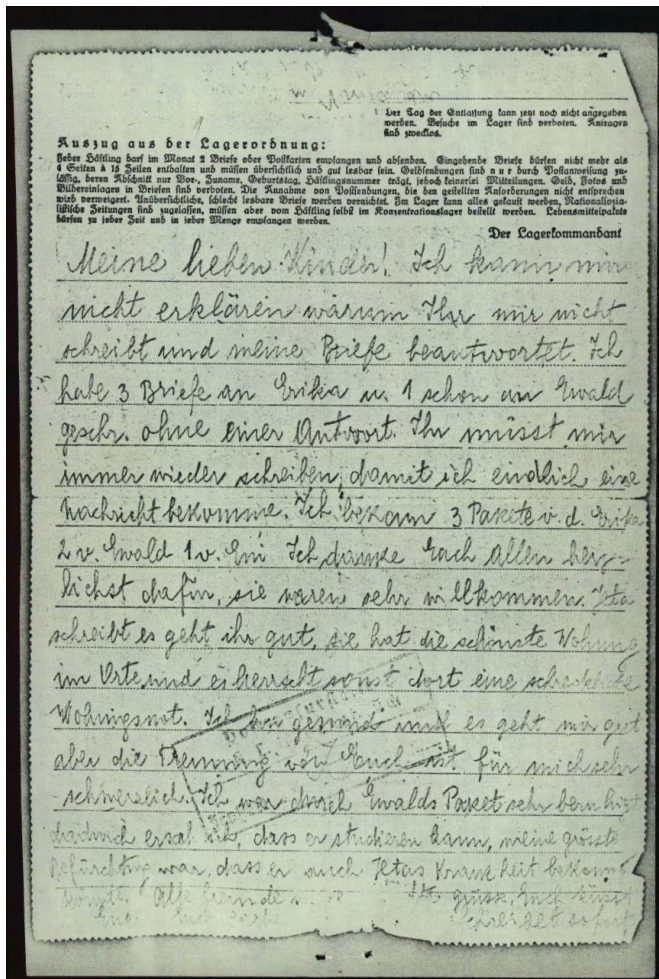 Der Tag der Entlassung kann jetzt noch nicht angegeben
werden. Besuche im Lager sind verboten. Anfragen
sind zwecklos.
Auszug aus der Lagerordnung:
Jeder Häftling darf im Monat 2 Briefe oder Postkarten empfangen und absenden. Eingehende Briefe dürfen nicht mehr als
4 Seiten à 15 Zeilen enthalten und müssen übersichtlich und gut lesbar sein. Geldsendungen sind nur durch Postanweisung zu-
lässig, deren Abschnitt nur Vor-, Zuname, Geburtstag, Häftlingsnummer trägt, jedoch keinerlei Mitteilungen. Geld, Fotos und
Bildereinlagen in Briefen sind verboten. Die Annahme von Postsendungen, die den gestellten Anforderungen nicht entsprechen
wird verweigert. Unübersichtliche, schlecht lesbare Briefe werden vernichtet. Im Lager kann alles gekauft werden. Nationalsozia-
listische Zeitungen sind zugelassen, müssen aber vom Häftling selbst im Konzentrationslager bestellt werden. Lebensmittelpakete
dürfen zu jeder Zeit und in jeder Menge empfangen werden.
Der Lagerkommandant
Meine lieben Kinder! Ich kann mir
nicht erklären warum Ihr mir nicht
schreibt und meine Briefe beantwortet. Ich
habe 3 Briefe an Erika u. 1 schon an Ewald
geschr. ohne einer Antwort. Ihr müsst mir
immer wieder schreiben, damit ich endlich eine
Nachricht bekomme. Ich bekam 3 Pakete v. d. Erika
2 v. Ewald 1 v. Ich danke Euch allen herz-
lichst dafür, sie waren sehr willkommen.
schreibt es geht ihr gut, sie hat die schönste Wohnung
im Orte und es herrscht sonst dort eine schreckliche
Wohnungsnot. Ich bin gesund und es geht mir gut
aber die Trennung von Euch ist für mich sehr
schmerzlich. Ich war durch Ewalds Paket sehr beruhigt
dadurch ersah ich, dass er studieren kann, meine grösste
Befürchtung war, dass er auch Jetas Krankheit bekommen
könnte. Alle grüsst Euch küsst
Euch schreibet sofort